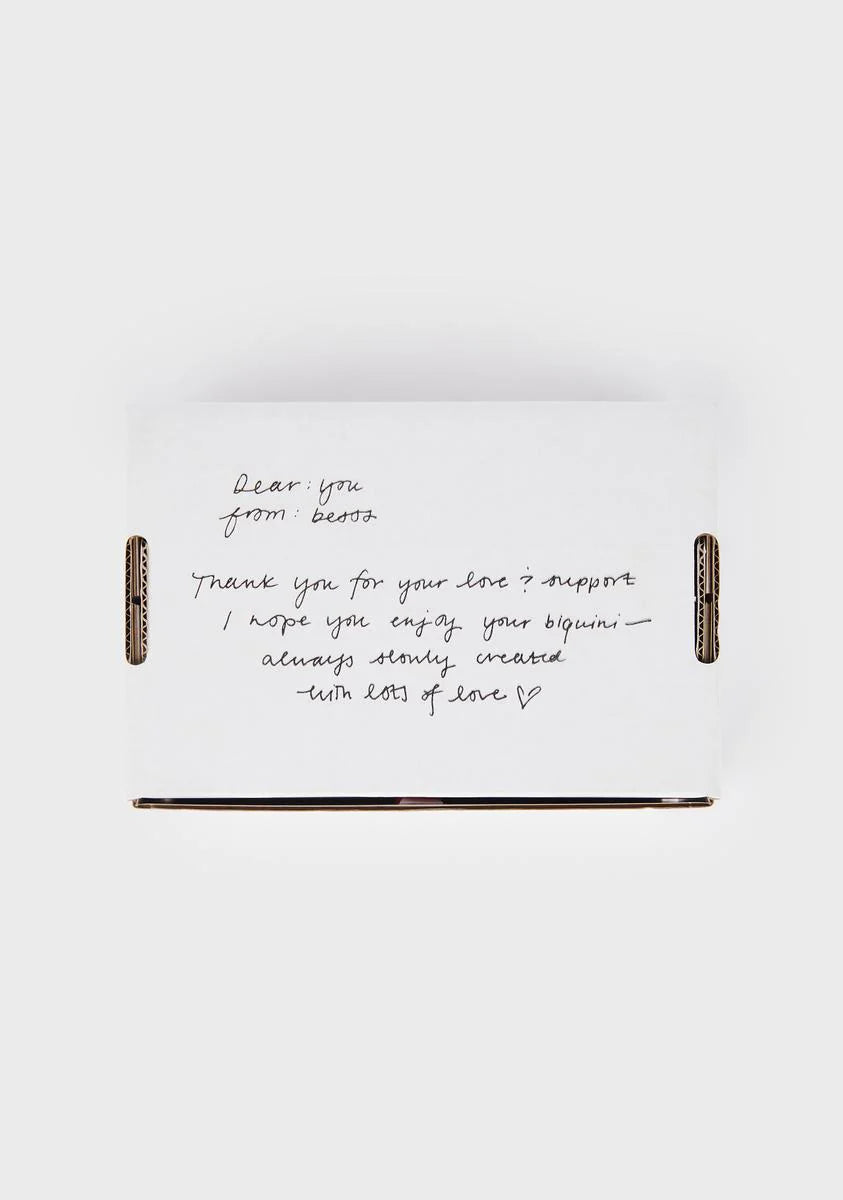 Dear: you
from: besos
Thank you for your love & support
I hope you enjoy your biquini—
always slowly created
with lots of love ♡